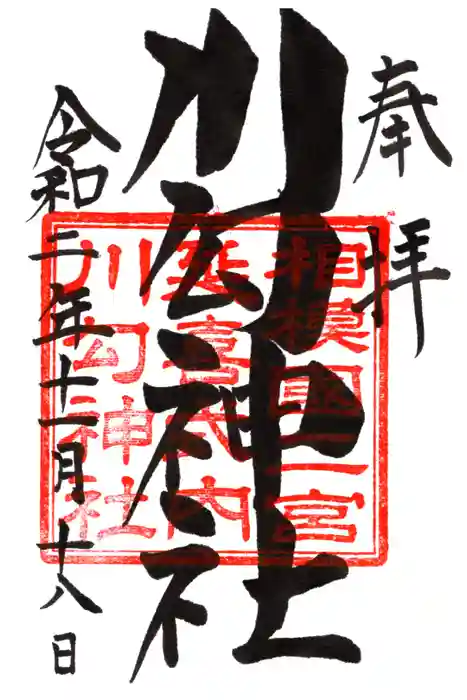 奉拝
川勾神社
相模國二宮
延喜式内
川勾神社
令和二年十一月十八日